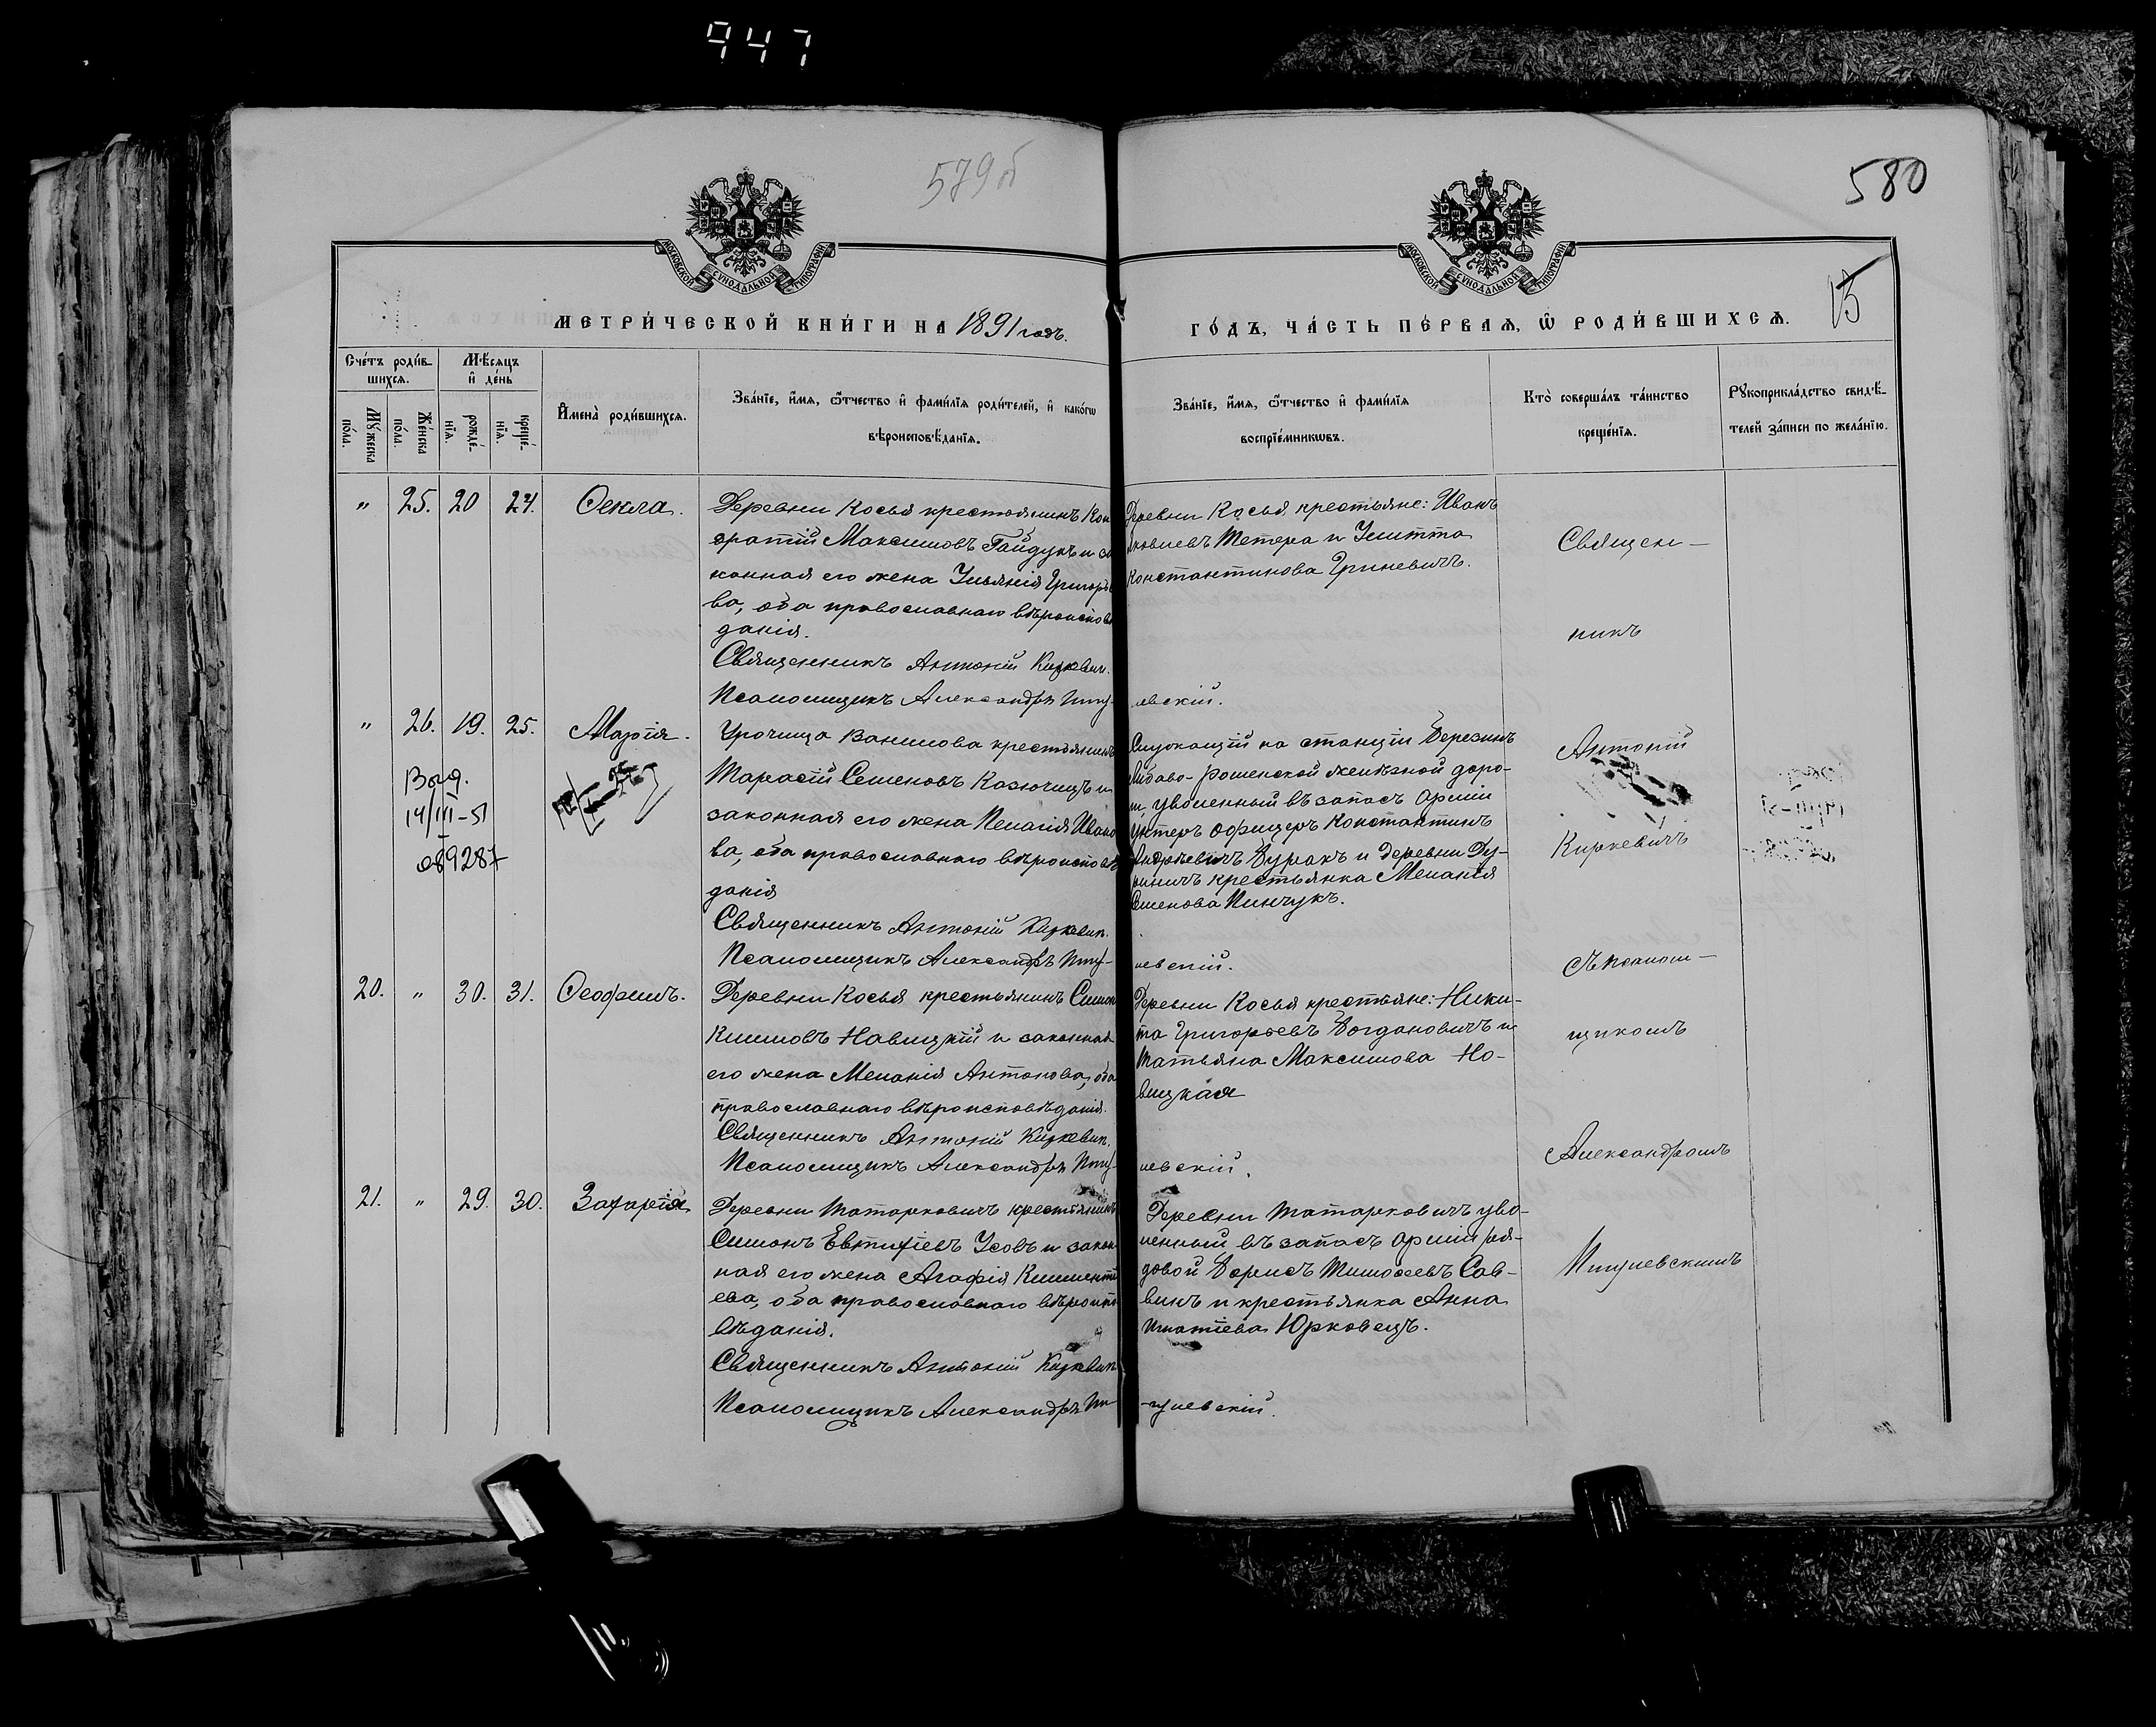 947
579 об
580
МОСКОВСКОЙ СУНОДАЛЬНОЙ ТИПОГРАФІИ
МОСКОВСКОЙ СУНОДАЛЬНОЙ ТИПОГРАФІИ
15
МЕТРИ́ЧЕСКОЙ КНИ́ГИ НА 1891 годъ.
ГО́ДЪ, ЧА́СТЬ ПЕ́РВАѦ, Ѡ҆ РОДИ́ВШИХСѦ.
Сче́тъ роди́в-
шихсѧ.
Мѣ́сѧцъ
и҆ де́нь
И҆мена̀ роди́вшихсѧ.
Зва́нїе, и҆́мѧ, ѻ҆́тчество и҆ фами́лїѧ роди́телей, и҆ како́гѡ
вѣроисповѣ́данїѧ.
Зва́нїе, и҆́мѧ, ѻ҆́тчество и҆ фами́лїѧ
воспрїе́мникѡвъ.
Кто̀ соверша́лъ та́инство
креще́нїѧ.
Рꙋкоприкла́дство свидѣ́-
телей за́писи по жела́нїю.
Мꙋ́жеска
по́ла.
Же́нска
по́ла.
рожде́-
нїѧ.
креще́-
нїѧ.
" 25. 20 24. Ѳекла.
Деревни Косья крестьянинъ Кон
дратій Максимовъ Гайдукъ и за
конная его жена Ульянія Григорье
ва, оба православнаго вѣроиспов
данія.
Священникъ Антоній Киркевич.
Псаломщикъ Александръ Пщу-
Деревни Косья крестьяне: Иванъ
Яковлевъ Тетера и Улитта
Константинова Гриневичъ.
левскій.
Священ-
никъ
" 26. 19. 25. Марія.
Выд.
14/III-51
089287
Урочища Ванилова крестьянинъ
Тарасій Семеновъ Казючицъ и
законная его жена Пелагія Ивано
ва, оба православнаго вѣроисповѣ
данія
Священникъ Антоній Киркевич.
Псаломщикъ Александръ Пщу-
Служащій на станціи Березинъ
Либаво-Роменской желѣзной доро-
ги уволенный въ запасъ арміи
Унтеръ офицеръ Константинъ
Андреевичъ Буракъ и деревни Ду-
Крестьянка Меланія
Семенова Пинчукъ.
левскій.
Антоній
Киркевичъ
съ псалом-
20. " 30. 31. Ѳеофилъ.
Деревни Косья крестьянинъ Симон
Климовъ Навицкій и законная
его жена Меланія Антонова, оба
православнаго вѣроисповѣданія.
Священникъ Антоній Киркевич.
Псаломщикъ Александръ Пщу-
Деревни Косья крестьяне: Ники-
та Григорьевъ Богдановичъ и
Татьяна Максимова Но-
вицкая
левскій.
щикомъ
Александромъ
21. " 29. 30. Захарія
Деревни Татарковичъ крестьянинъ
Симонъ Евтихіевъ Усовъ и закон
ная его жена Агафія Климентi
ева, оба православнаго вѣроиспо
вѣданія.
Священникъ Антоній Киркевич
Псаломщикъ Александръ Пщ-
Деревни Татарковичъ уво-
ленный въ запасъ арміи ря-
довой Борисъ Тимоѳеевъ Сав-
викъ и крестьянка Анна
Игнатіева Юрковецъ.
-улевскій.
Пщулевскимъ